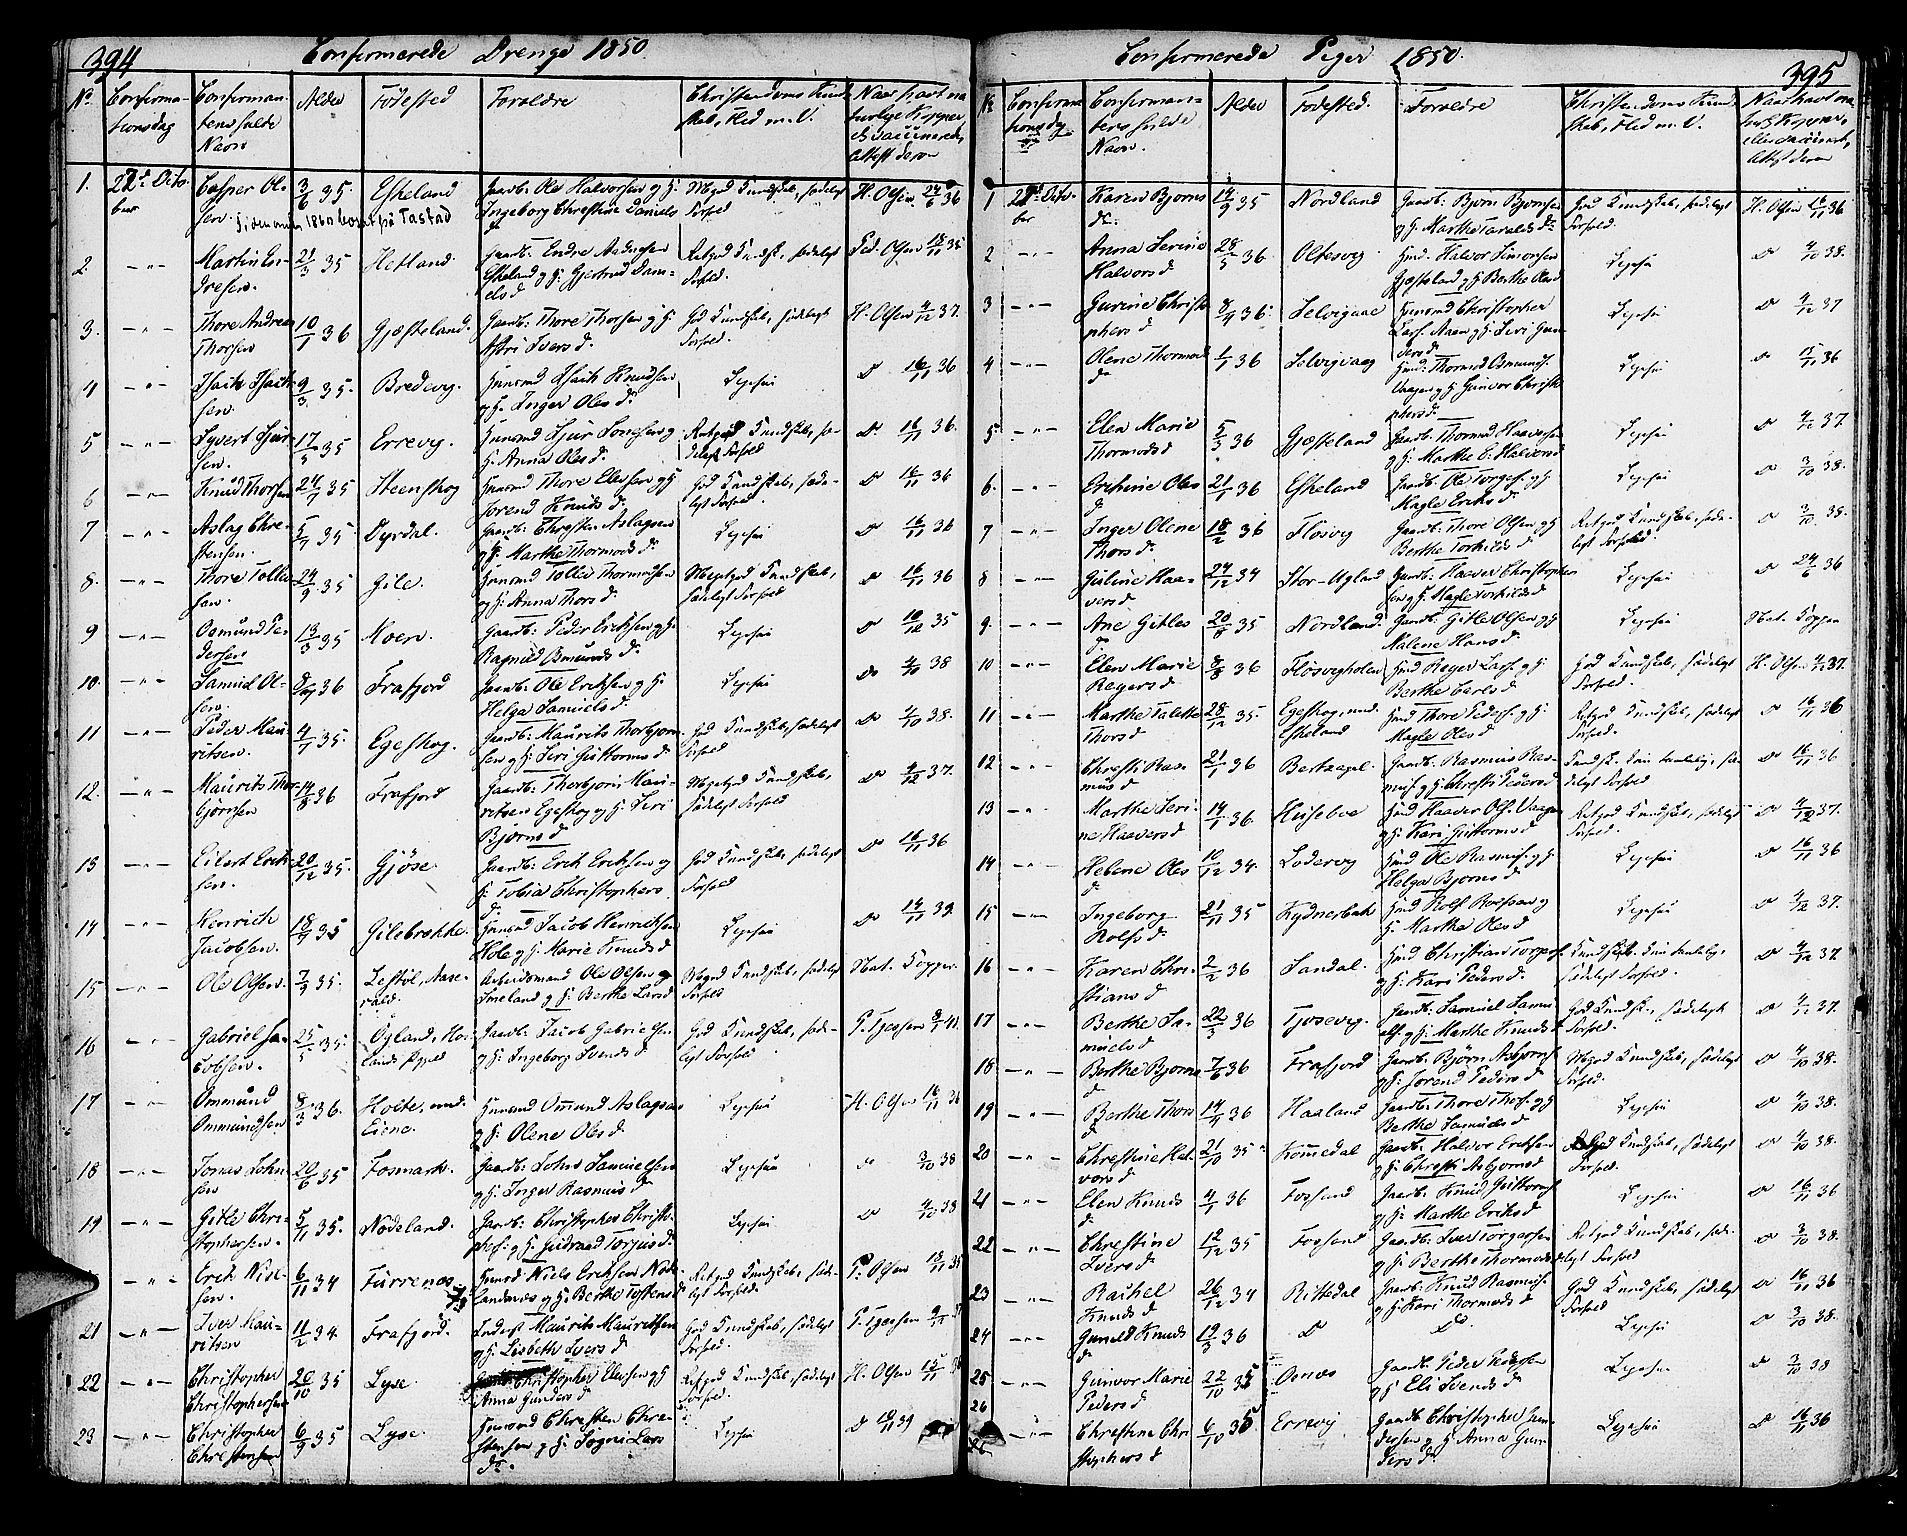 394
Confirmerede Drenge 1850.
No Confirmationsdag Confirmantens fulde Navn Alder Fødested Forældre Christendoms Kundskab, Flid m. V. Naar havt naturlige Kopper el. vaccineret, Attest derom
1. 27de October Casper Olsen. 3/6 35. Eskeland Gaardb: Ole Halvorsen og H: Ingeborg Christine Daniels d Megod Kundskab, sædeligt Forhold H. Olsen 24/6 36
2. -"- Martin Endresen. 21/3 35 Hetland. Gaardb: Endre Andersen Eskeland og H: Gjertrud Daniels d Retgod Kundsk, sædeligt Forhold. Ped. Olsen 18/11 35
3. -"- Thore Andreas Thorsen 10/1 36 Gjesteland. Gaardb: Thore Thorsen og H: Astri Ivers d. God Kundskab, sædeligt Forhold. H. Olsen 4/12 37.
4 -"- Isach Isachsen. 9/3 35. Bredevg. Huusmd Isach Knudsen og H. Inger Oles d. Ligesaa do 16/11 36
5 -"- Syvert Sjursen. 17/5 35 Errevg. Huusmd Sjur Jonesen og H. Anna Oles d. Retgod Kundskab, sædeligt Forhold do 16/11 36.
6 -"- Knud Thorsen 24/7 35 Steenskog Huusmd Thore Elevsen og H Jorend Knuds d. God Kundskab, sædeligt Forhold. do 16/11 36
7 -"- Aslag Christensen. 5/7 35. Dyrdal. Gaardb: Christen Aslagsen og H: Marthe Thormods d. Ligesaa do 16/11 36
8. -"- Thore Tollevsen. 24/9 35 Gile. Huusmd Tollev Thormodsen og H: Anna Thors d. Megetgod Kundskab, sædeligt Forhold. do 16/11 36
9 -"- Osmund Pedersen. 13/3 35 Moen. Gaardb: Peder Eriksen og H: Ragnild Osmunds d. Ligesaa do 10/12 35
10. -"- Samuel Olsen. 36 Frafjord Gaardb: Ole Eriksen og H: Helga Samuels d. Ligesaa do 4/10 38
11 -"- Peder Mauritsen. 4/1 35. Egeskog. Gaardb: Maurits Thorbjørnsen og H: Seri Guttorms d. God Kundskab, sædeligt Forhold do 4/10 38.
12. -"- Maurits Thorbjørnsen 14/8 36 Frafjord Gaardb: Thorbjørn Mauritsen Egeskog og H: Seri Bjørns d Megetgod Kundskab, sædeligt Forhold do 4/12 37.
13 -"- Eilert Eriksen. 20/12 35. Gjöse. Gaardb: Erik Eriksen og H: Tobia Christophers d God Kundskab, sædeligt Forhold do 16/11 36
14 -"- Henrich Jacobsen. 18/7 35 Gilebrekke. Huusmd Jacob Henriksen Hole og H: Marie Knuds d Ligesaa do 14/11 39.
15 -"- Ole Olsen. 7/9 35. Arbeidsmand Ole Olsen Imeland og H: Berthe Lars d Megod Kundskab, sædeligt Forhold Nat. Kopper.
16 -"- Gabriel Jacobsen. 25/5 35. Øgland, Gaardb: Jacob Gabrielsen og H: Ingeborg Svends d. God Kundskab, sædeligt Forhold.
17 -"- Ommund Ommundsen 8/3 36. Holte, und. Eiene. Huusmd Omund Aslagsen og H: Olene Oles d. Ligesaa H. Olsen 16/11 36
18 -"- Jonas Johnsen 20/6 35 Fosmark. Gaardb: John Samuelsen og H: Inger Rasmus d Ligesaa do 3/10 38
19 -"- Gitle Christophersen. 5/11 35. Nodeland. Gaardb: Christopher Christophers. og H: Gudraad Torjus d. Ligesaa do 4/10 38
-"- Erik Nielsen. 6/11 34 Furrenes Huusmd Niels Eriksen Nodelandsnes og H: Berthe Tostens d Retgod Kundskab, sædeligt Forhold. P. Olsen 18/11 35
21 -"- Iver Mauritsen 11/2 34. Frafjord. Inderst Maurits Mauritsen og H: Lisbeth Ivers d. God Kundskab, sædeligt Forhold.
22 -"- Christopher Christophersen 20/10 35 Lyse. Christopher Elevsen og H Anna Gunders d Retgod Kundskab, sædeligt Forhold. H. Olsen 15/11 36
23 -"- Christopher Christensen 6/9 35 Lyse. Huusmd Christen Christensen og H: Sogni Lars d. Ligesaa do 39
Confirmerede Piger 1850.
395
No Confirmationsdag Confirmantens fulde Navn. Alder Fødested. Forældre Christendoms Kundskab, Flid m. V. Naar havt naturl. Kopper, eller vaccineret, Attest derom
1 27de October Karen Bjorns d. 14/9 35 Nordland Gaardb: Bjørn Bjørnsen og H: Marthe Taralds d. God Kundskab, sædeligt Forhold. H. Olsen 16/11 36
2 -"- Anna Serine Halvors d 28/5 36 Oltesvig Huusmd: Halvor Simonsen Gjesteland og H Berthe Ols d Ligesaa do 4/10 38.
3 -"- Gurine Christophers d 8/4 36. Selvigaae Huusmd Christopher Lars. Aaen og H: Seri Gunders d Ligesaa do 4/12 37
4 -"- Olene Thormods d 1/1 36 Selvigvaag Huusmd: Thormod Osmunds. Vaagen og H: Gunvor Christophers d. Ligesaa do 15/11 36
5. -"- Elen Marie Thormods d 5/3 36 Gjesteland Gaardb: Thormod Haaversen og H: Marthe E. Halvors d Ligesaa do 4/12 37.
6. -"- Erikine Oles d 21/1 36 Eskeland Gaardb: Ole Torgers. og H Magle Eriks d. Ligesaa do 3/10 38.
7 -"- Inger Olene Thors d. 18/2 36 Flosvig Gaardb: Thore Olsen og H Berthe Torkilds d Retgod Kundskab, sædeligt Forhold. do 3/10 38.
8 -"- Guline Haavers d 24/12 34 Stor-Ugland Gaardb: Haaver Christophersen og H: Magle Torkilds d Ligesaa do 24/6 36
9. -"- Ane Gitles d 20/8 35 Nordland. Gaardb: Gitle Olsen og H Malene Hans d. Ligesaa Nat. Kopper
10 -"- Elen Marie Reyers d 8/8 36 Flosvigholen Huusmd Reyer Lars. og H: Berthe Carls d God Kundskab, sædeligt Forhold. H. Olsen 4/12 37.
11 -"- Marthe Talette Thors d 28/12 35. Egeskog, und. Eskeland Huusmd Thore Peders. og H: Magle Oles d Retgod Kundskab, sædeligt Forhold. do 16/11 36
12 -"- Christi Rasmus d 21/1 36 Bertragel. Gaardb: Rasmus Rasmus. og H: Christi Peders d do 16/11 36
13 -"- Marthe Serine Haavers d 14/1 36. Huseboe Huusmd Haaver Ols. Vaagen og H: Kari Guttorms d Retgod Kundskab, sædeligt Forhold. do 4/12 37.
14 -"- Helene Oles d 10/12 34. Lodevig Huusmd Ole Rasmus. og H Helga Bjorns d Ligesaa do 16/11 36
15 -"- Ingeborg Rolfs d. 21/11 35 Kydnerbak Huusmd Rolf Rolfsen og H: Marthe Oles d Ligesaa do 4/12 37.
16 -"- Karen Christians d 2/2 36 Sandal. Huusmd Christian Torgers. og H: Kari Peders d. do 4/12 37.
17 -"- Berthe Samuels d 22/3 36 Tjosevg. Gaardb: Samuel Samuels. og H: Marthe Knuds d God Kundskab, sædeligt Forhold. do 4/12 37.
18 -"- Berthe Bjorns d 7/6 36 Frafjord Gaardb: Bjørn Asbjørns. og H: Jorend Peders d Megod Kundskab, sædeligt Forhold. do 4/10 38.
19 -"- Berthe Thors d 14/4 36 Haaland Gaardb: Thore Thors. og H Berthe Samuels d Ligesaa do 4/10 38.
20 -"- Christine Halvors d 21/10 35 Komedal Gaardb: Halvor Eriksen og H: Christi Asbjørns d Retgod Kundskab, sædeligt Forhold. do 4/10 38.
21 -"- Elen Knuds d 4/1 36 Fossand Gaardb: Knud Guttorms. og H: Marthe Eriks d Ligesaa do 16/11 36
22 -"- Christine Ivers d 12/12 35 Fossand Gaardb: Iver Torgersen og H: Berthe Thormods d Retgod Kundskab, sædeligt Forhold do 3/10 38.
23 -"- Rachel Knuds d 26/12 34 Rettedal Gaardb: Knud Rasmus. og H: Kari Thormods d God Kundskab, sædeligt Forhold do 16/11 36
24 -"- Gunild Knuds d 19/3 36 do do Ligesaa do 3/10 38.
25 -"- Gunvor Marie Peders d 22/10 35 Oones Gaardb: Peder Pedersen og H Eli Svends d Ligesaa do 3/10 38
26 -"- Christine Christophers d 6/10 35 Errevig Gaardb: Christopher Gundersen og H: Anna Gunders d Ligesaa do 16/11 36